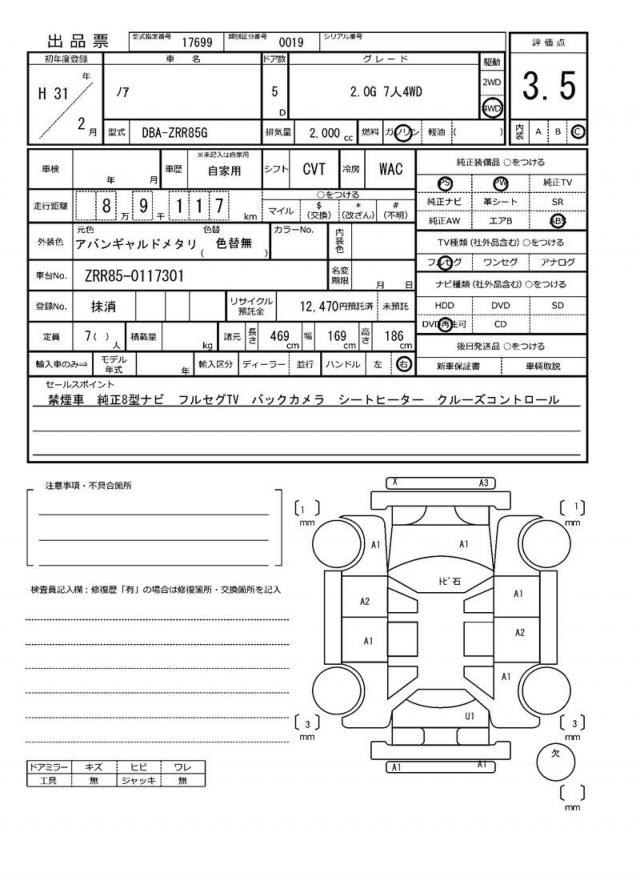 出品票
型式指定番号 17699 類別区分番号 0019 シリアル番号
評価点
3.5
内装 A B C
初年度登録 車名 ドア数 グレード 駆動
H 31 年 2 月
ノア
5 D
2.0G 7人4WD
2WD
4WD
型式 DBA-ZRR85G 排気量 2,000 cc 燃料 ガソリン 軽油 ( )
車検 年 月 車歴 ※未記入は自家用 自家用 シフト CVT 冷房 WAC
走行距離 8 万 9 千 1 1 7 km
○をつける
マイル $ (交換) * (改ざん) # (不明)
外装色 元色 アバンギャルドメタリ 色替 ( 色替無 ) カラーNo. 内装色
車台No. ZRR85-0117301 名変期限 月 日
登録No. 抹消 リサイクル預託金 12,470円預託済 未預託
定員 7( ) 人 積載量 kg 諸元 長さ 469 cm 幅 169 cm 高さ 186 cm
輸入車のみ⇒ モデル年式 年 輸入区分 ディーラー 並行 ハンドル 左 右
純正装備品 ○をつける
PS PW 純正TV
純正ナビ 革シート SR
純正AW エアB ABS
TV種類 (社外品含む) ○をつける
フルセグ ワンセグ アナログ
ナビ種類 (社外品含む) ○をつける
HDD DVD SD
DVD再生可 CD
後日発送品 ○をつける
新車保証書 車輌取説
セールスポイント
禁煙車 純正8型ナビ フルセグTV バックカメラ シートヒーター クルーズコントロール
注意事項・不具合箇所
検査員記入欄：修復歴「有」の場合は修復箇所・交換箇所を記入
ドアミラー キズ ヒビ ワレ
工具 無 ジャッキ 無
X A3
1 mm
1 mm
A1 A1
トビ石
A2 A1
A1 A2
A1
U1
3 mm
3 mm
A1 A1
欠
mm